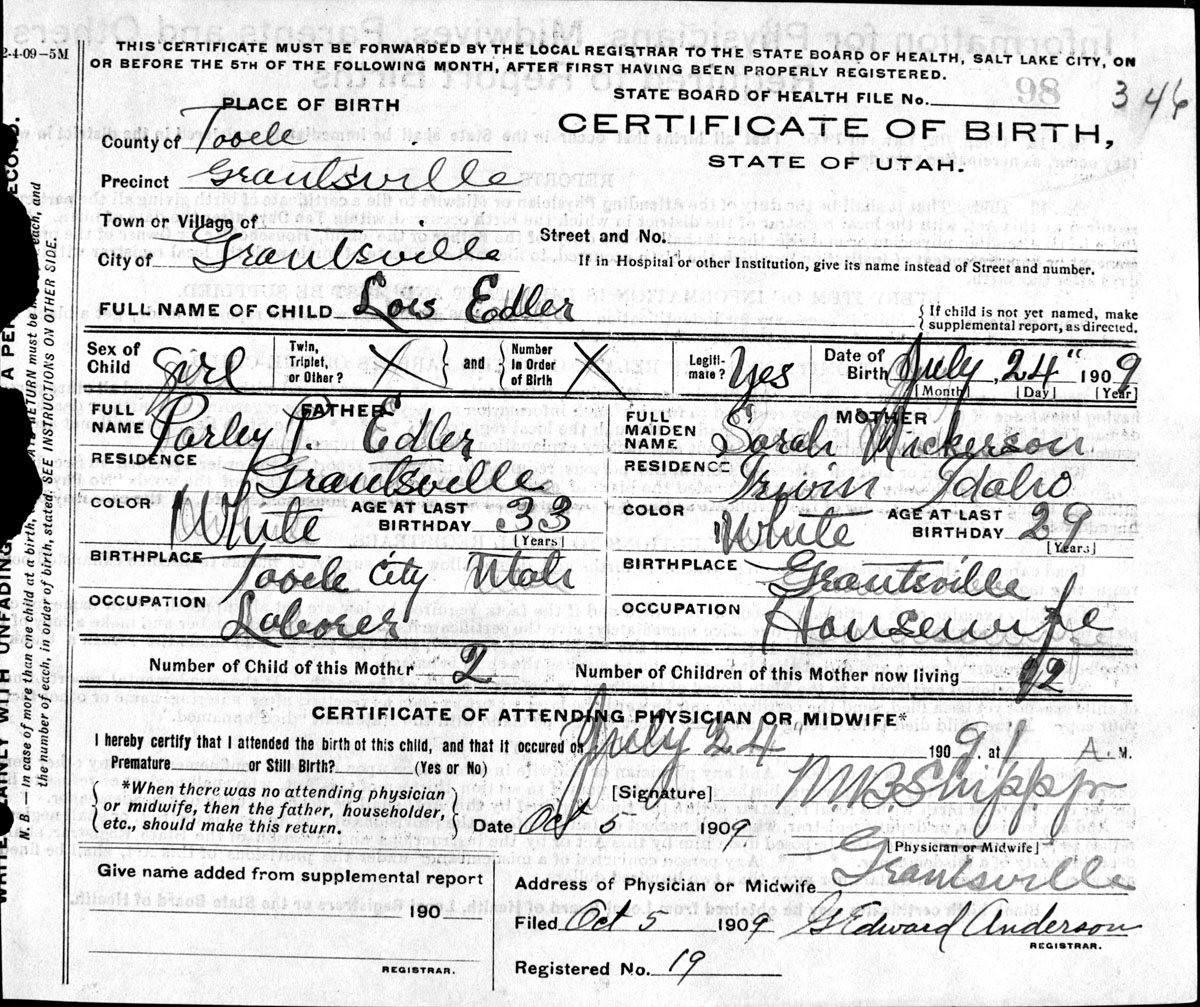 2-4-09—5M
THIS CERTIFICATE MUST BE FORWARDED BY THE LOCAL REGISTRAR TO THE STATE BOARD OF HEALTH, SALT LAKE CITY, ON
OR BEFORE THE 5TH OF THE FOLLOWING MONTH, AFTER FIRST HAVING BEEN PROPERLY REGISTERED.
STATE BOARD OF HEALTH FILE No. 346
PLACE OF BIRTH
CERTIFICATE OF BIRTH,
STATE OF UTAH.
County of Tooele
Precinct Grantsville
Town or Village of
City of Grantsville
Street and No.
If in Hospital or other Institution, give its name instead of Street and number.
FULL NAME OF CHILD Lois Edler
{ If child is not yet named, make
supplemental report, as directed.
Sex of Child girl Twin, Triplet, or Other? X } and { Number In Order of Birth X Legiti-mate? Yes Date of Birth July 24" 1909
(Month) (Day) (Year)
FATHER
FULL NAME Parley P. Edler
RESIDENCE Grantsville
COLOR White AGE AT LAST BIRTHDAY 33
(Years)
BIRTHPLACE Tooele City Utah
OCCUPATION Laborer
MOTHER
FULL MAIDEN NAME Sarah Nickerson
RESIDENCE Irwin Idaho
COLOR White AGE AT LAST BIRTHDAY 29
(Years)
BIRTHPLACE Grantsville
OCCUPATION Housewife
Number of Child of this Mother 2 Number of Children of this Mother now living 2
CERTIFICATE OF ATTENDING PHYSICIAN OR MIDWIFE*
I hereby certify that I attended the birth of this child, and that it occured on July 24 1909, at 1 A. M.
Premature or Still Birth? (Yes or No)
{ *When there was no attending physician
or midwife, then the father, householder,
etc., should make this return. }
[Signature]
Date Oct 5 1909
[Physician or Midwife]
Give name added from supplemental report
190
REGISTRAR.
Address of Physician or Midwife Grantsville
Filed Oct 5 1909 G Edward Anderson
REGISTRAR.
Registered No. 19
N. B.—In case of more than one child at a birth,
RETURN must be
each, and
the number of each, in order of birth, stated. SEE INSTRUCTIONS ON OTHER SIDE.
WITH UNFADING